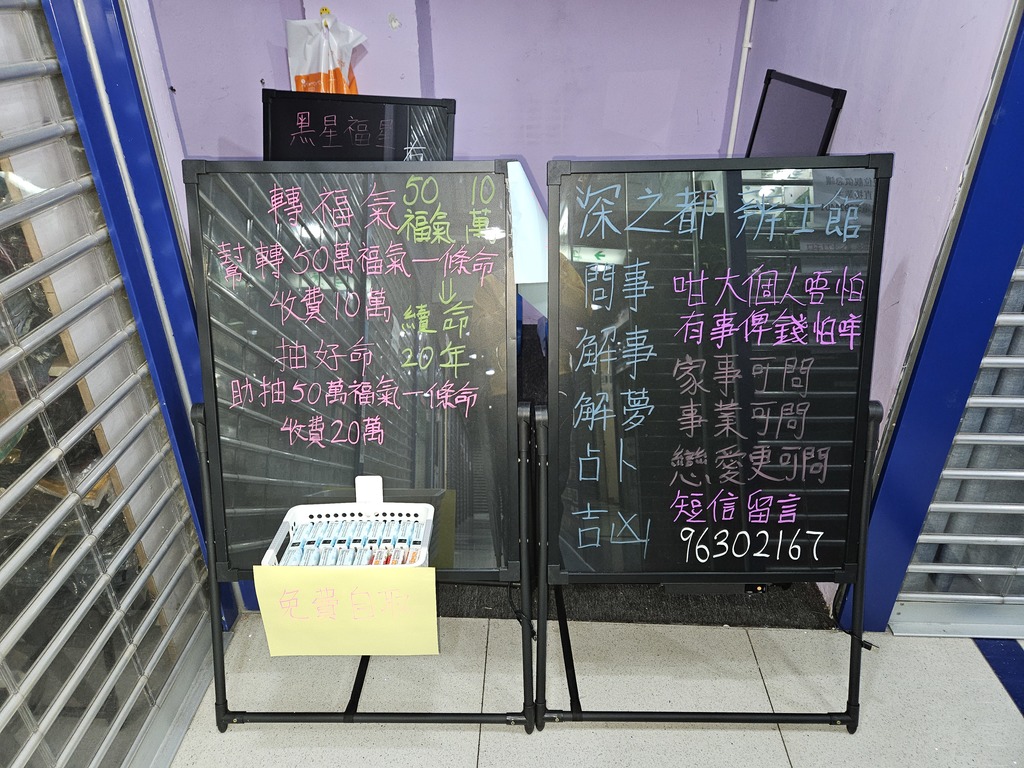 黑星福星
轉福氣
50 10
福氣 萬
幫轉50萬福氣一條命
收費10萬
↓
續命
抽好命
20年
助抽50萬福氣一條命
收費20萬
免費
深之都 術士館
問事
解事
解夢
占卜
吉凶
咁大個人唔怕
有事俾錢怕咩
家事可問
事業可問
戀愛更可問
短信留言
96302167